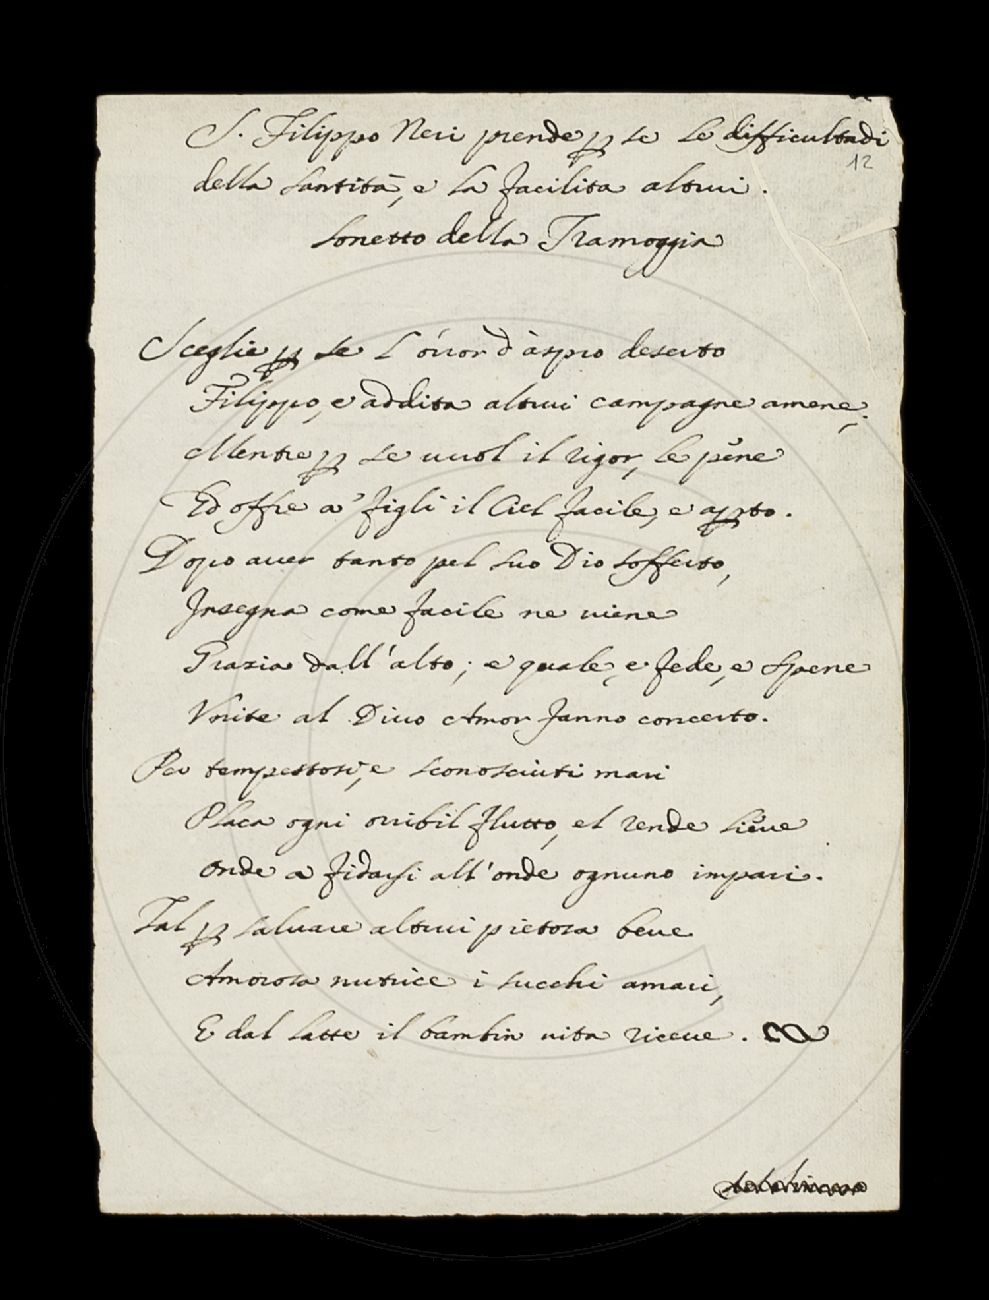 S. Filippo Neri prende ꝑ se le difficultadi
12
della santità, e la facilita altrui.
Sonetto della Tramoggia
Sceglie ꝑ se l'órror d'àspro deserto
Filippo, e addita altrui campagne amene;
Mentre ꝑ se vuol il rigor, le péne
Ed offre a' figli il Ciel facile, e aꝑto.
Dopo aver tanto pel suo Dio sofferto,
Insegna come facile ne viene
Grazia dall'alto; e quale, e fede, e spene
Unite al Divo Amor fanno concerto.
Per tempestosi, e sconosciuti mari
Placa ogni orribil flutto, el rende liéve
Onde a fidarsi all'onde ognuno impari.
Tal ꝑ salvare altrui pietosa beve
Amorosa nutrice i succhi amari,
E dal latte il bambin vita riceve.